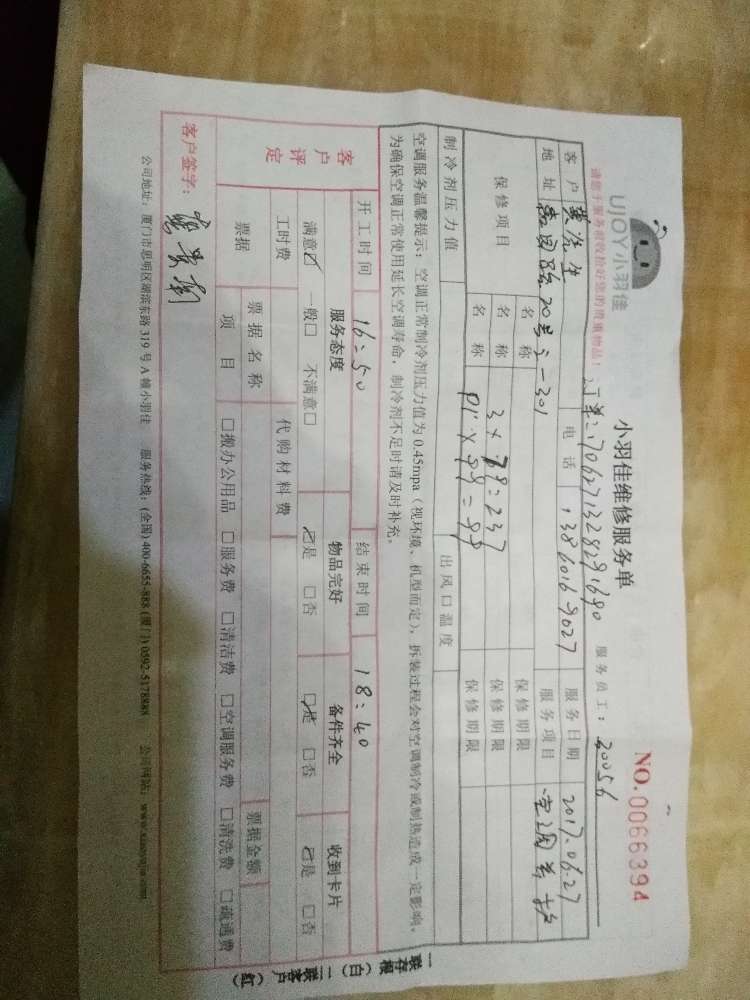 UJOY小羽佳
小羽佳维修服务单
NO.0066394
请您于服务前收检好您的贵重物品!
订单:1706271328291690
服务员工: 20056
客户 黄先生 电话 13860169027 服务日期 2017.06.27
地址 20号之一301 服务项目 空调养护
保修项目 名称 保修期限
名称 3×79=237 保修期限
名称 保修期限
制冷剂压力值 出风口温度
空调服务温馨提示:空调正常制冷剂压力值为0.45mpa(视环境、机型而定),拆装过程会对空调制冷或制热造成一定影响,
为确保空调正常使用延长空调寿命,制冷剂不足时请及时补充。
开工时间 16:50 结束时间 18:40
客户评定 服务态度 物品完好 备件齐全 收到卡片
满意☑ 一般□ 不满意□ ☑是 □否 ☑是 □否 ☑是 □否
工时费 代购材料费
票据 票据名称 票据金额
项目 □搬办公用品 □服务费 □清洁费 □空调服务费 □清洗费 □疏通费
客户签字:
公司地址:厦门市思明区湖滨东路319号A幢小羽佳 服务热线:(全国)400-6655-888(厦门)0592-5178888 公司网站:
一联存根(白)二联客户(红)